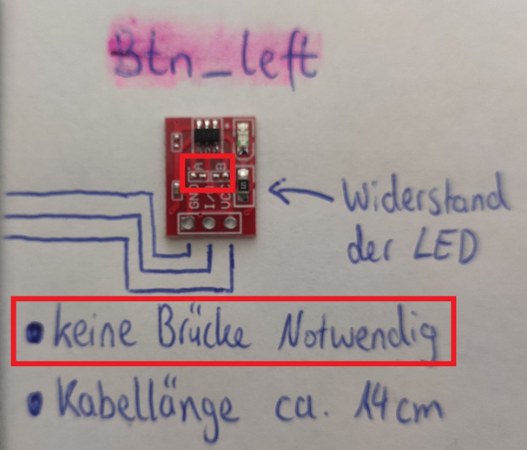 Btn_left
A B
GND I/ VC
Widerstand
der LED
• keine Brücke Notwendig
• Kabellänge ca. 14cm